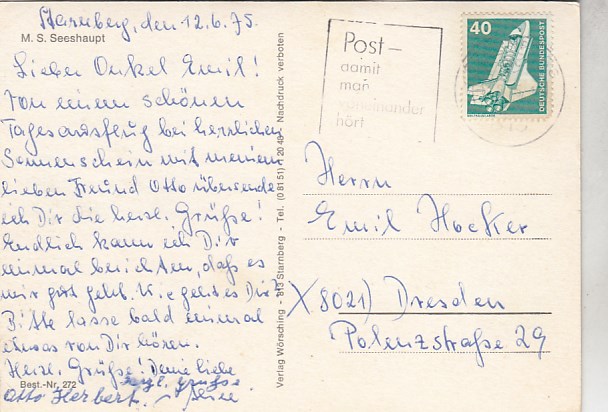 Starnberg, den 12.6.75.
M. S. Seeshaupt
Lieber Onkel Emil!
Von einem schönen
Tagesausflug bei herrlichem
Sonnenschein mit meinem
lieben Freund Otto übersende
ich Dir die herzl. Grüße!
Endlich kann ich Dir
einmal berichten, daß es
mir gut geht. Wie geht es Dir
Bitte lasse bald einmal
etwas von Dir hören.
Herzl. Grüße! Deine liebe
Best.-Nr. 272
herzl. Grüße
Otto Herbert.
Verlag Wörsching - 813 Starnberg - Tel. (0 81 51) 1 20 40 - Nachdruck verboten
Post-
damit
man
voneinander
hört
40
DEUTSCHE BUNDESPOST
Herrn
Emil Hocker
X 8021) Dresden
Polenzstraße 29